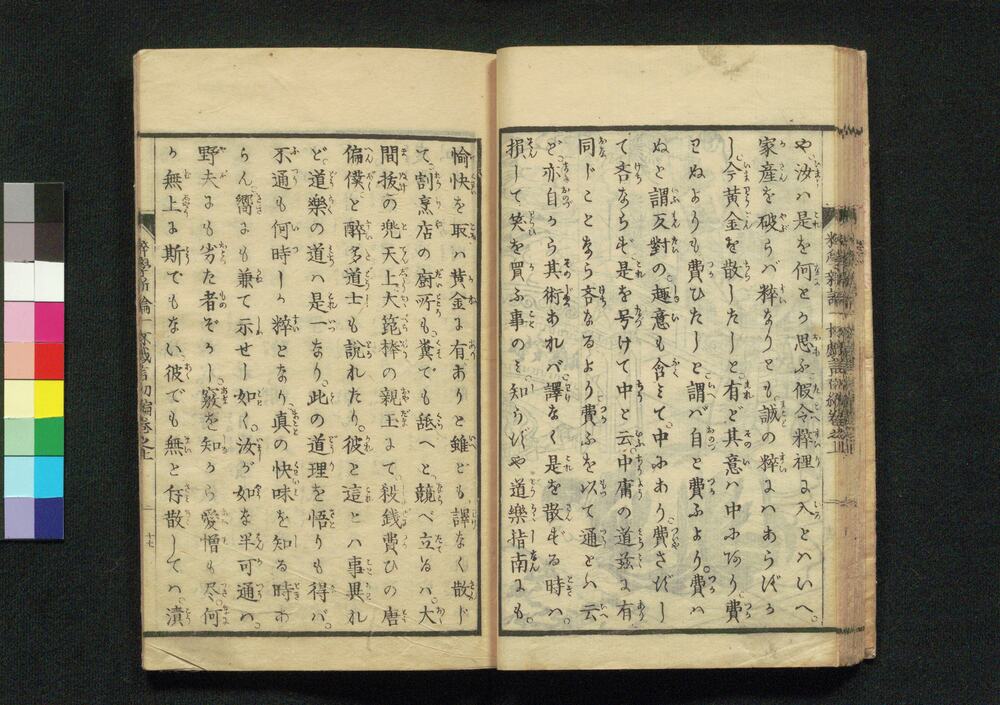 や汝ハ是を何とか思ふ仮令粋裡に入とハいへ。
家産を破らバ粋なりとも。誠の粋にハあらざるか
し。今黄金を散したしと有ど其意ハ中にあり費
さぬよりも費ひたしと謂バ自と費ふより。費ハ
ぬと謂反對の。趣意も含ミて。中にあり費さずし
て吝ならず是を号けて中と云。中庸の道茲に有
同じことなら吝なるより費ふを以て通とハ云
ど。亦自から其術あれバ。譯なく是を散ずる時ハ。
損して笑を買ふ事のミ知らずや道樂指南にも。
愉快を取ハ黄金に有ありと雖ども譯なく散じ
て。割烹店の厨所も糞でも舐へと競べ立るハ。大
間抜の兜天上大箆棒の親王にて。殺銭費ひの唐
偏僕と醉多道士も説れたり。彼と這とハ事異れ
ど。道樂の道ハ是一なり。此の道理を悟りも得バ。
不通も何時しか粹となり。真の快味を知る時あ
らん。嚮にも兼て示せし如く。汝が如な半可通ハ。
野夫にも劣た者ぞかし。竅を知から愛憎も尽。何
か無上に斯でもない。彼でも無と存散してハ。潰
十七